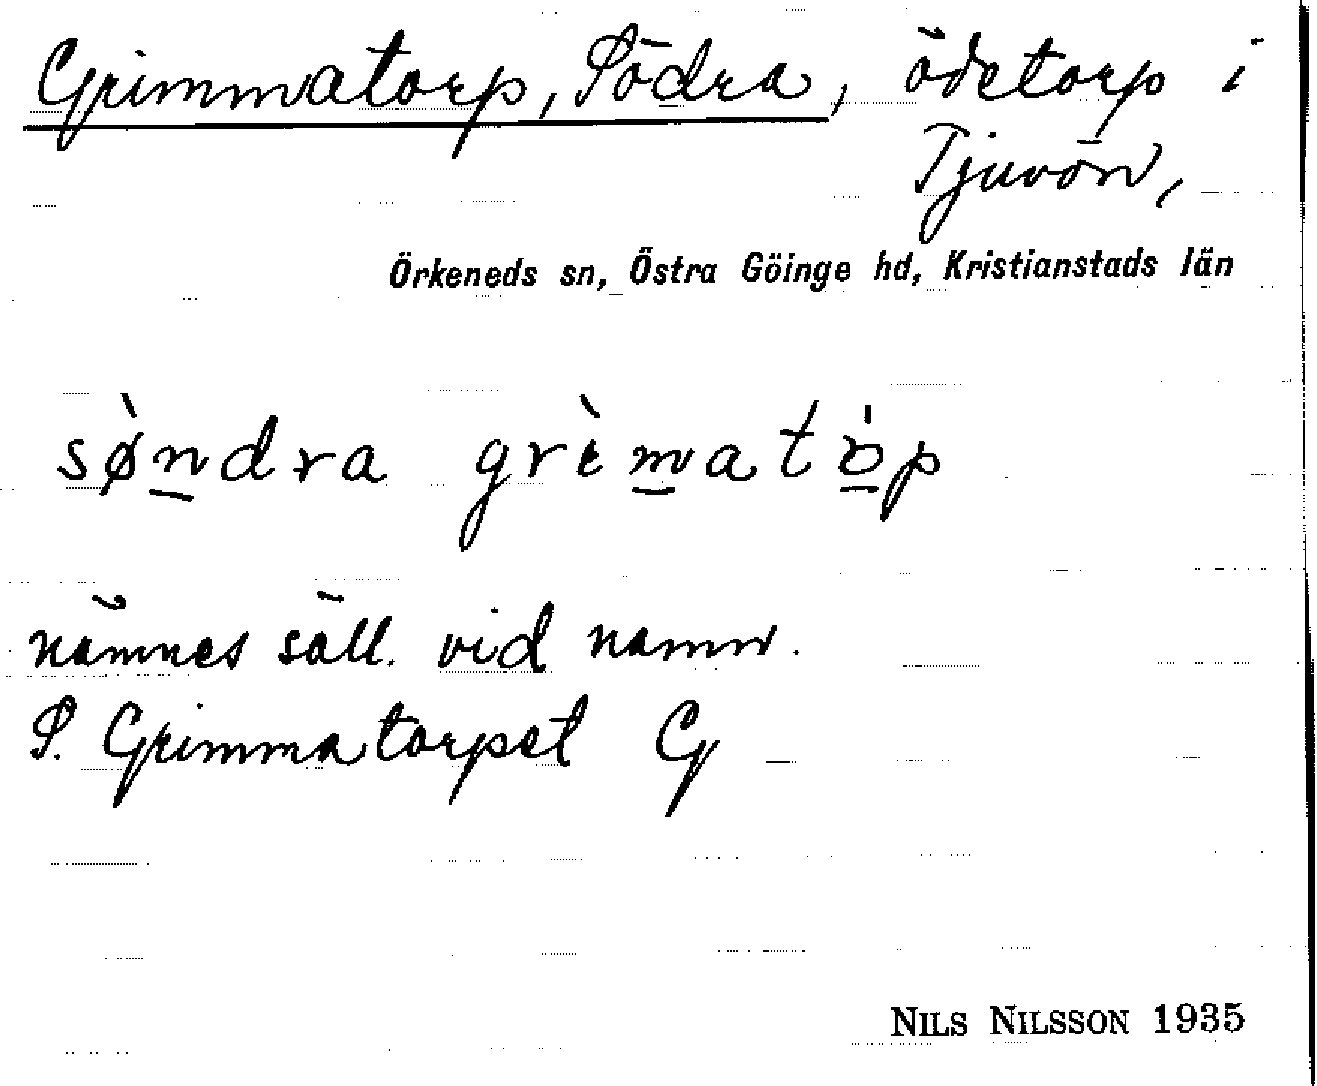 Grimmatorp, Södra, ödetorp i
Tjuvön,
Örkeneds sn, Östra Göinge hd, Kristianstads län
sø̀n̲dra grèm̲ató̲p
nämnes säll. vid namn.
S. Grimmatorpet G
NILS NILSSON 1935